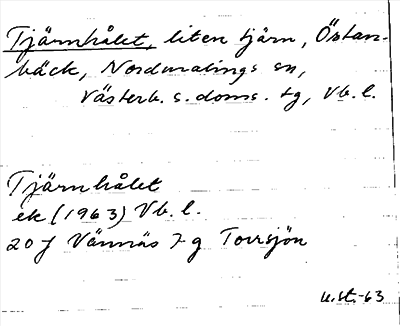 Tjärnhålet, liten tjärn, Östan-
bäck, Nordmalings sn,
Västerb. s. doms. tg, Vb. l.
Tjärnhålet
ek (1963) Vb. l.
20 J Vännäs 7 g Torrsjön
u.st.-63